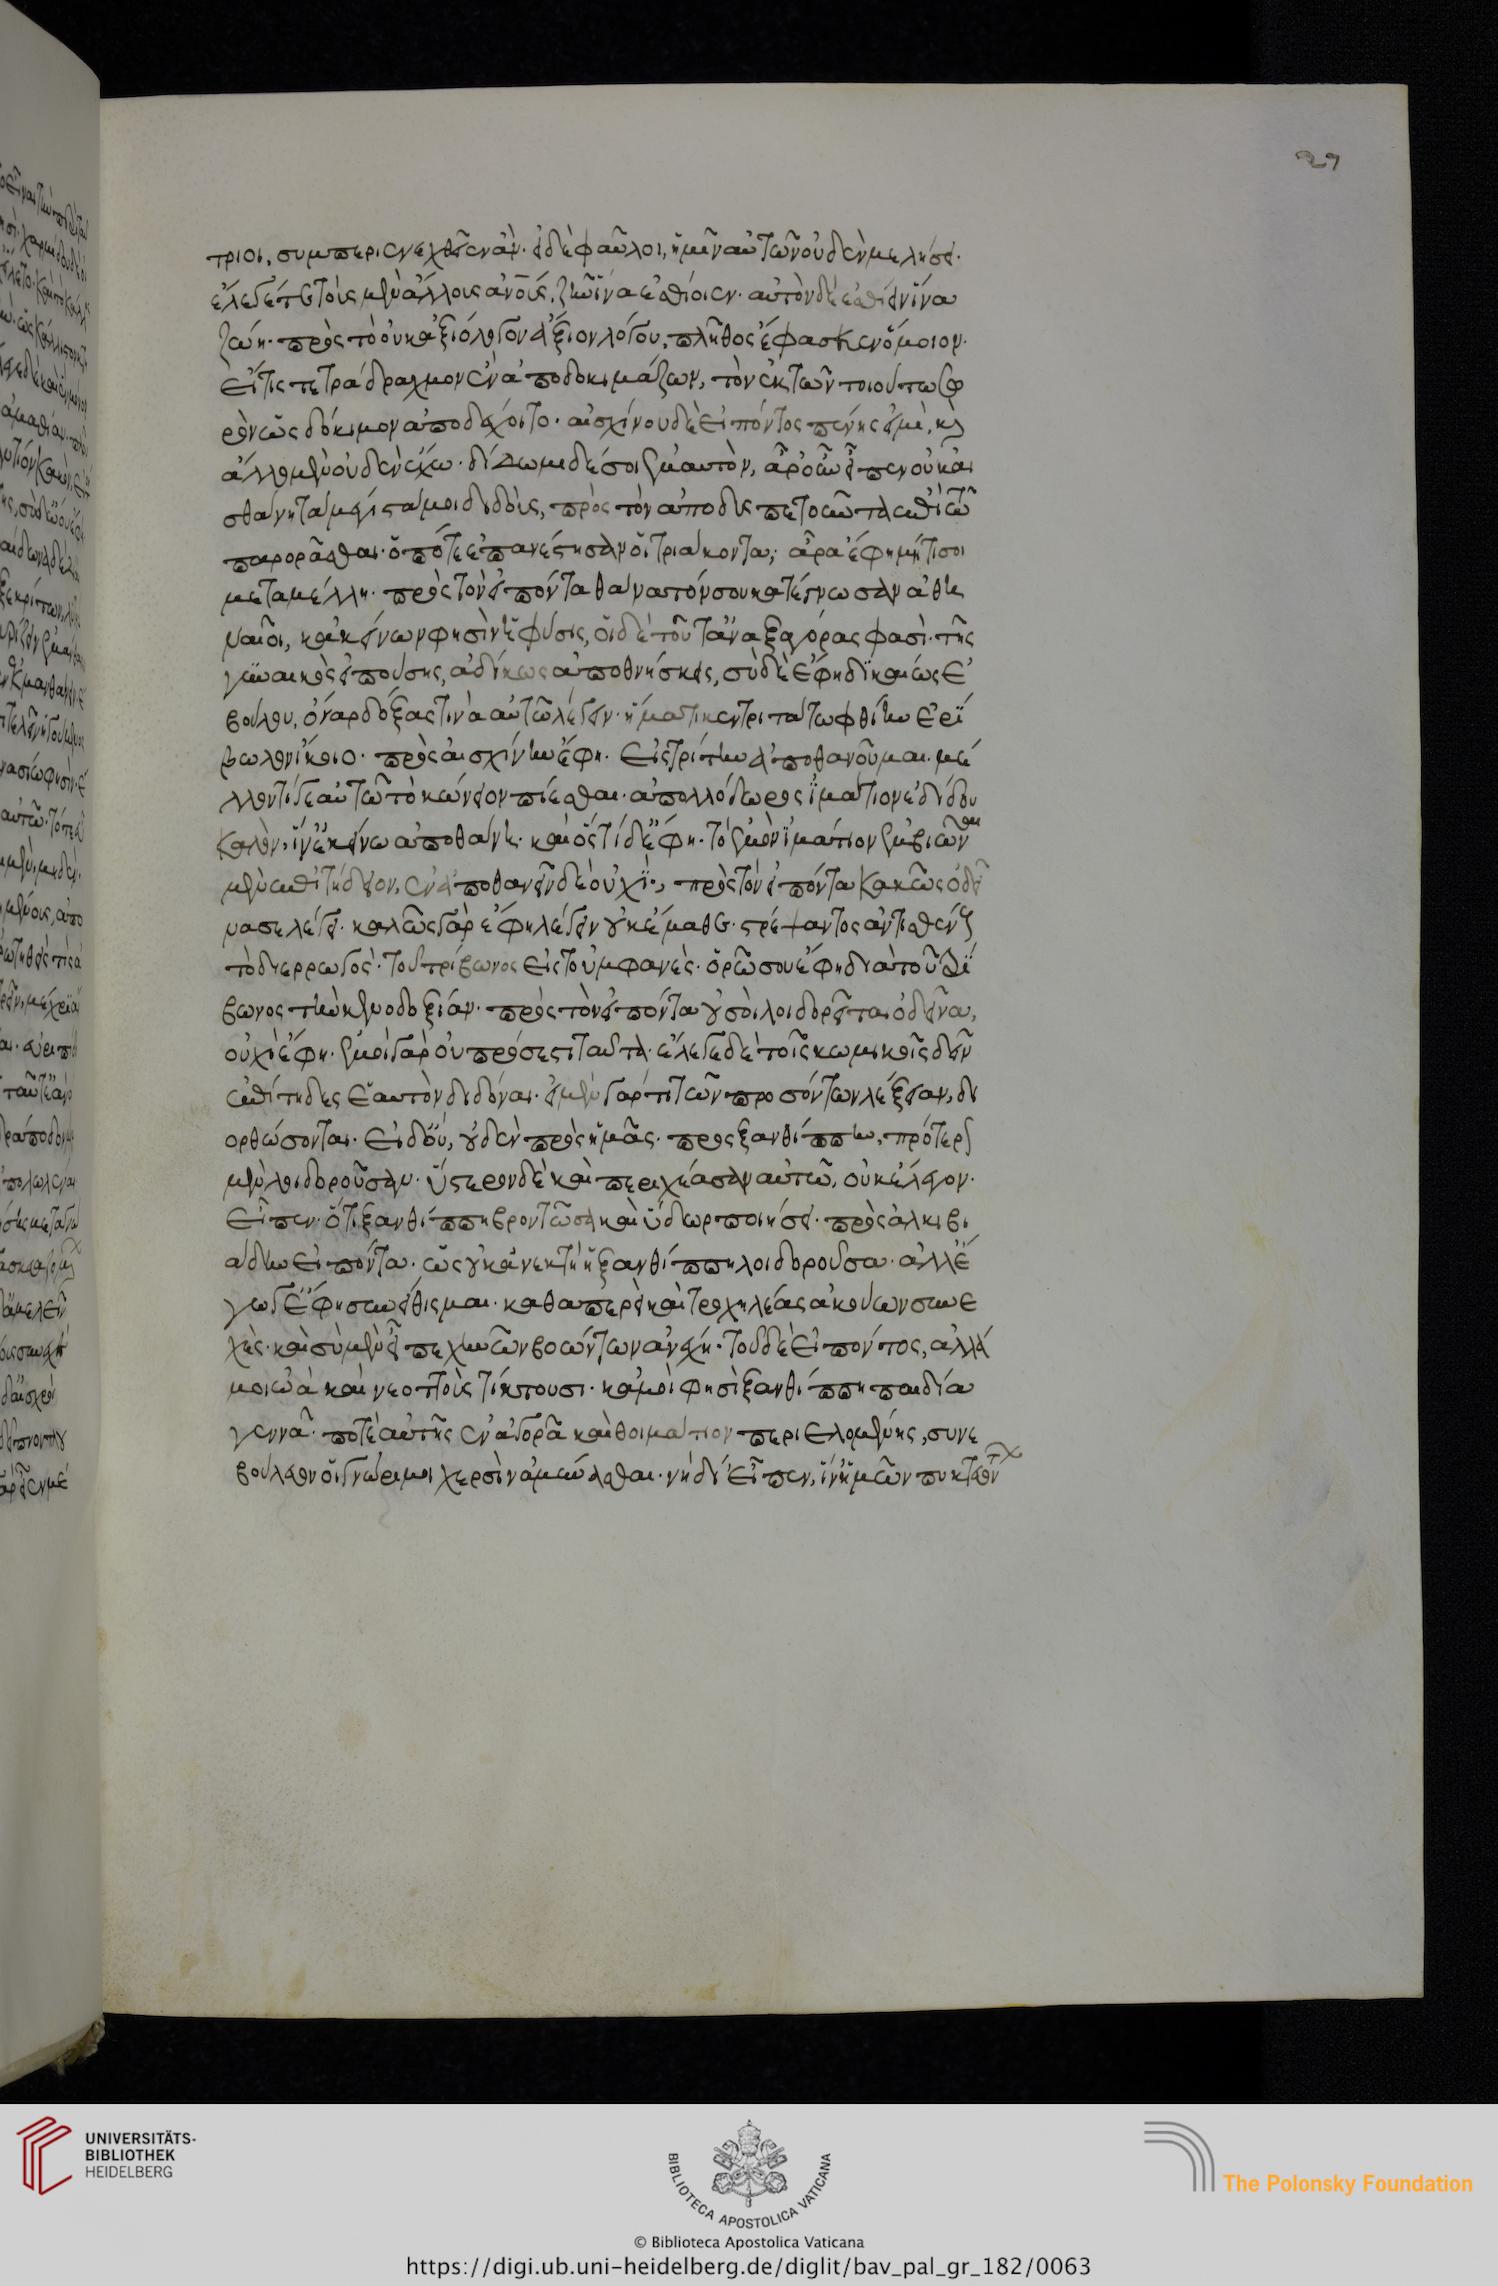 29
τριοι, συμπεριενεχθεῖεν ἄν· εἰ δὲ φαῦλοι, ἡμῖν αὐτῶν οὐδὲν μελήσει·
ἔλεγέ τε τοὺς μὲν ἄλλους ἀνους, ζῆν ἵνα ἐσθίοιεν· αὐτὸν δὲ ἐσθίειν ἵνα
ζώη· πρὸς τὸ οὐκ ἀξιόλογον ἄξιον λόγου, πλῆθος ἔφασκεν ὅμοιον·
εἴ τις τετράδραχμον ἓν ἀποδοκιμάζων, τὸν ἐκ τῶν τοιούτων σω
ρὸν ὡς δόκιμον ἀποδέχοιτο· αἰσχίνου δὲ εἰπόντος πένης εἰμὶ, καὶ
ἄλλο μὲν οὐδὲν ἔχω· δίδωμι δέ σοι ἐμαυτὸν, ἆρ' οὖν εἶπεν οὐκ αἰ
σθάνη τὰ μέγιστά μοι διδοὺς, πρὸς τὸν ἀποδυσπετοῦντα ἐπὶ τῶ
παρορᾶσθαι· ὁπότε ἐπανέστησαν οἱ τριάκοντα, ἆρα ἔφη μή τι σοι
μεταμέλλη· πρὸς τὸν εἰπόντα θάνατόν σου κατέγνωσαν ἀθη
ναῖοι, κἀκείνων φησὶν ἡ φύσις, οἱ δὲ τοῦτ' ἀναξαγόρας φασὶ· τῆς
γυναικὸς εἰπούσης, ἀδίκως ἀποθνήσκεις, σὺ δὲ ἔφη δικαίως ἐ
βούλου, ὄναρ δόξας τινὰ αὐτῶ λέγειν· ἤματί κεν τριτάτω φθίην ἐρί
βωλον ἵκοιο· πρὸς αἰσχίνην ἔφη· εἰς τρίτην ἀποθανοῦμαι· μέ
λλοντί τε αὐτῶ τὸ κώνειον πίεσθαι· ἀπολλόδωρος ἱμάτιον ἐδίδου
καλὸν, ἵν' ἐκείνω ἀποθάνη· καὶ ὃς τί δὲ ἔφη· τὸ ἐμὸν ἱμάτιον ἐμβιῶναι
μὲν ἐπιτήδειον, ἐναποθανεῖν δὲ οὐχί·, πρὸς τὸν εἰπόντα κακῶς ὁ δεῖ
να σε λέγει· καλῶς γὰρ ἔφη λέγειν οὐκ ἔμαθε· στρέψαντος ἀντισθένους
τὸ διερρωγὸς· τοῦ τρίβωνος εἰς τοὐμφανὲς· ὁρῶ σου ἔφη διὰ τοῦ τρί
βωνος τὴν κενοδοξίαν· πρὸς τὸν εἰπόντα οὐ σοὶ λοιδορεῖται ὁ δεῖνα,
οὐχὶ ἔφη· ἐμοὶ γὰρ οὐ πρόσεστι ταῦτα· ἔλεγε δὲ τοῖς κωμικοῖς δεῖν
ἐπίτηδες ἑαυτὸν διδόναι· εἰ μὲν γάρ τι τῶν προσόντων λέξειαν, δι
ορθώσονται· εἰ δ' οὔ, οὐδὲν πρὸς ἡμᾶς· πρὸς ξανθίππην, πρότερον
μὲν λοιδοροῦσαν· ὕστερον δὲ καὶ περιχέασαν αὐτῶ, οὐκ ἔλεγον·
εἶπεν· ὅτι ξανθίππη βροντῶσα καὶ ὕδωρ ποιήσει· πρὸς ἀλκιβι
άδην εἰπόντα· ὡς οὐκ ἀνεκτὴ ἡ ξανθίππη λοιδοροῦσα· ἀλλ' ἔ
γωγ' ἔφη συνείθισμαι· καθάπερεὶ καὶ τροχηλέας ἀκούων συνε
χὲς· καὶ σὺ μὲν εἶπε χηνῶν βοώντων ἀνέχη· τοῦ δὲ εἰπόντος, ἀλλά
μοι ὠὰ καὶ νεοττοὺς τίκτουσι· κἀμοὶ φησὶ ξανθίππη παιδία
γεννᾶ· ποτὲ αὐτῆς ἐν ἀγορᾶ καὶ θοιμάτιον περιελομένης, συνε
βούλευον οἱ γνώριμοι χερσὶν ἀμύνασθαι· νὴ δί' εἶπεν, ἵν' ἡμῶν πυκτευόν
UNIVERSITÄTS-
BIBLIOTHEK
HEIDELBERG
BIBLIOTECA APOSTOLICA VATICANA
The Polonsky Foundation
© Biblioteca Apostolica Vaticana
https://digi.ub.uni-heidelberg.de/diglit/bav_pal_gr_182/0063